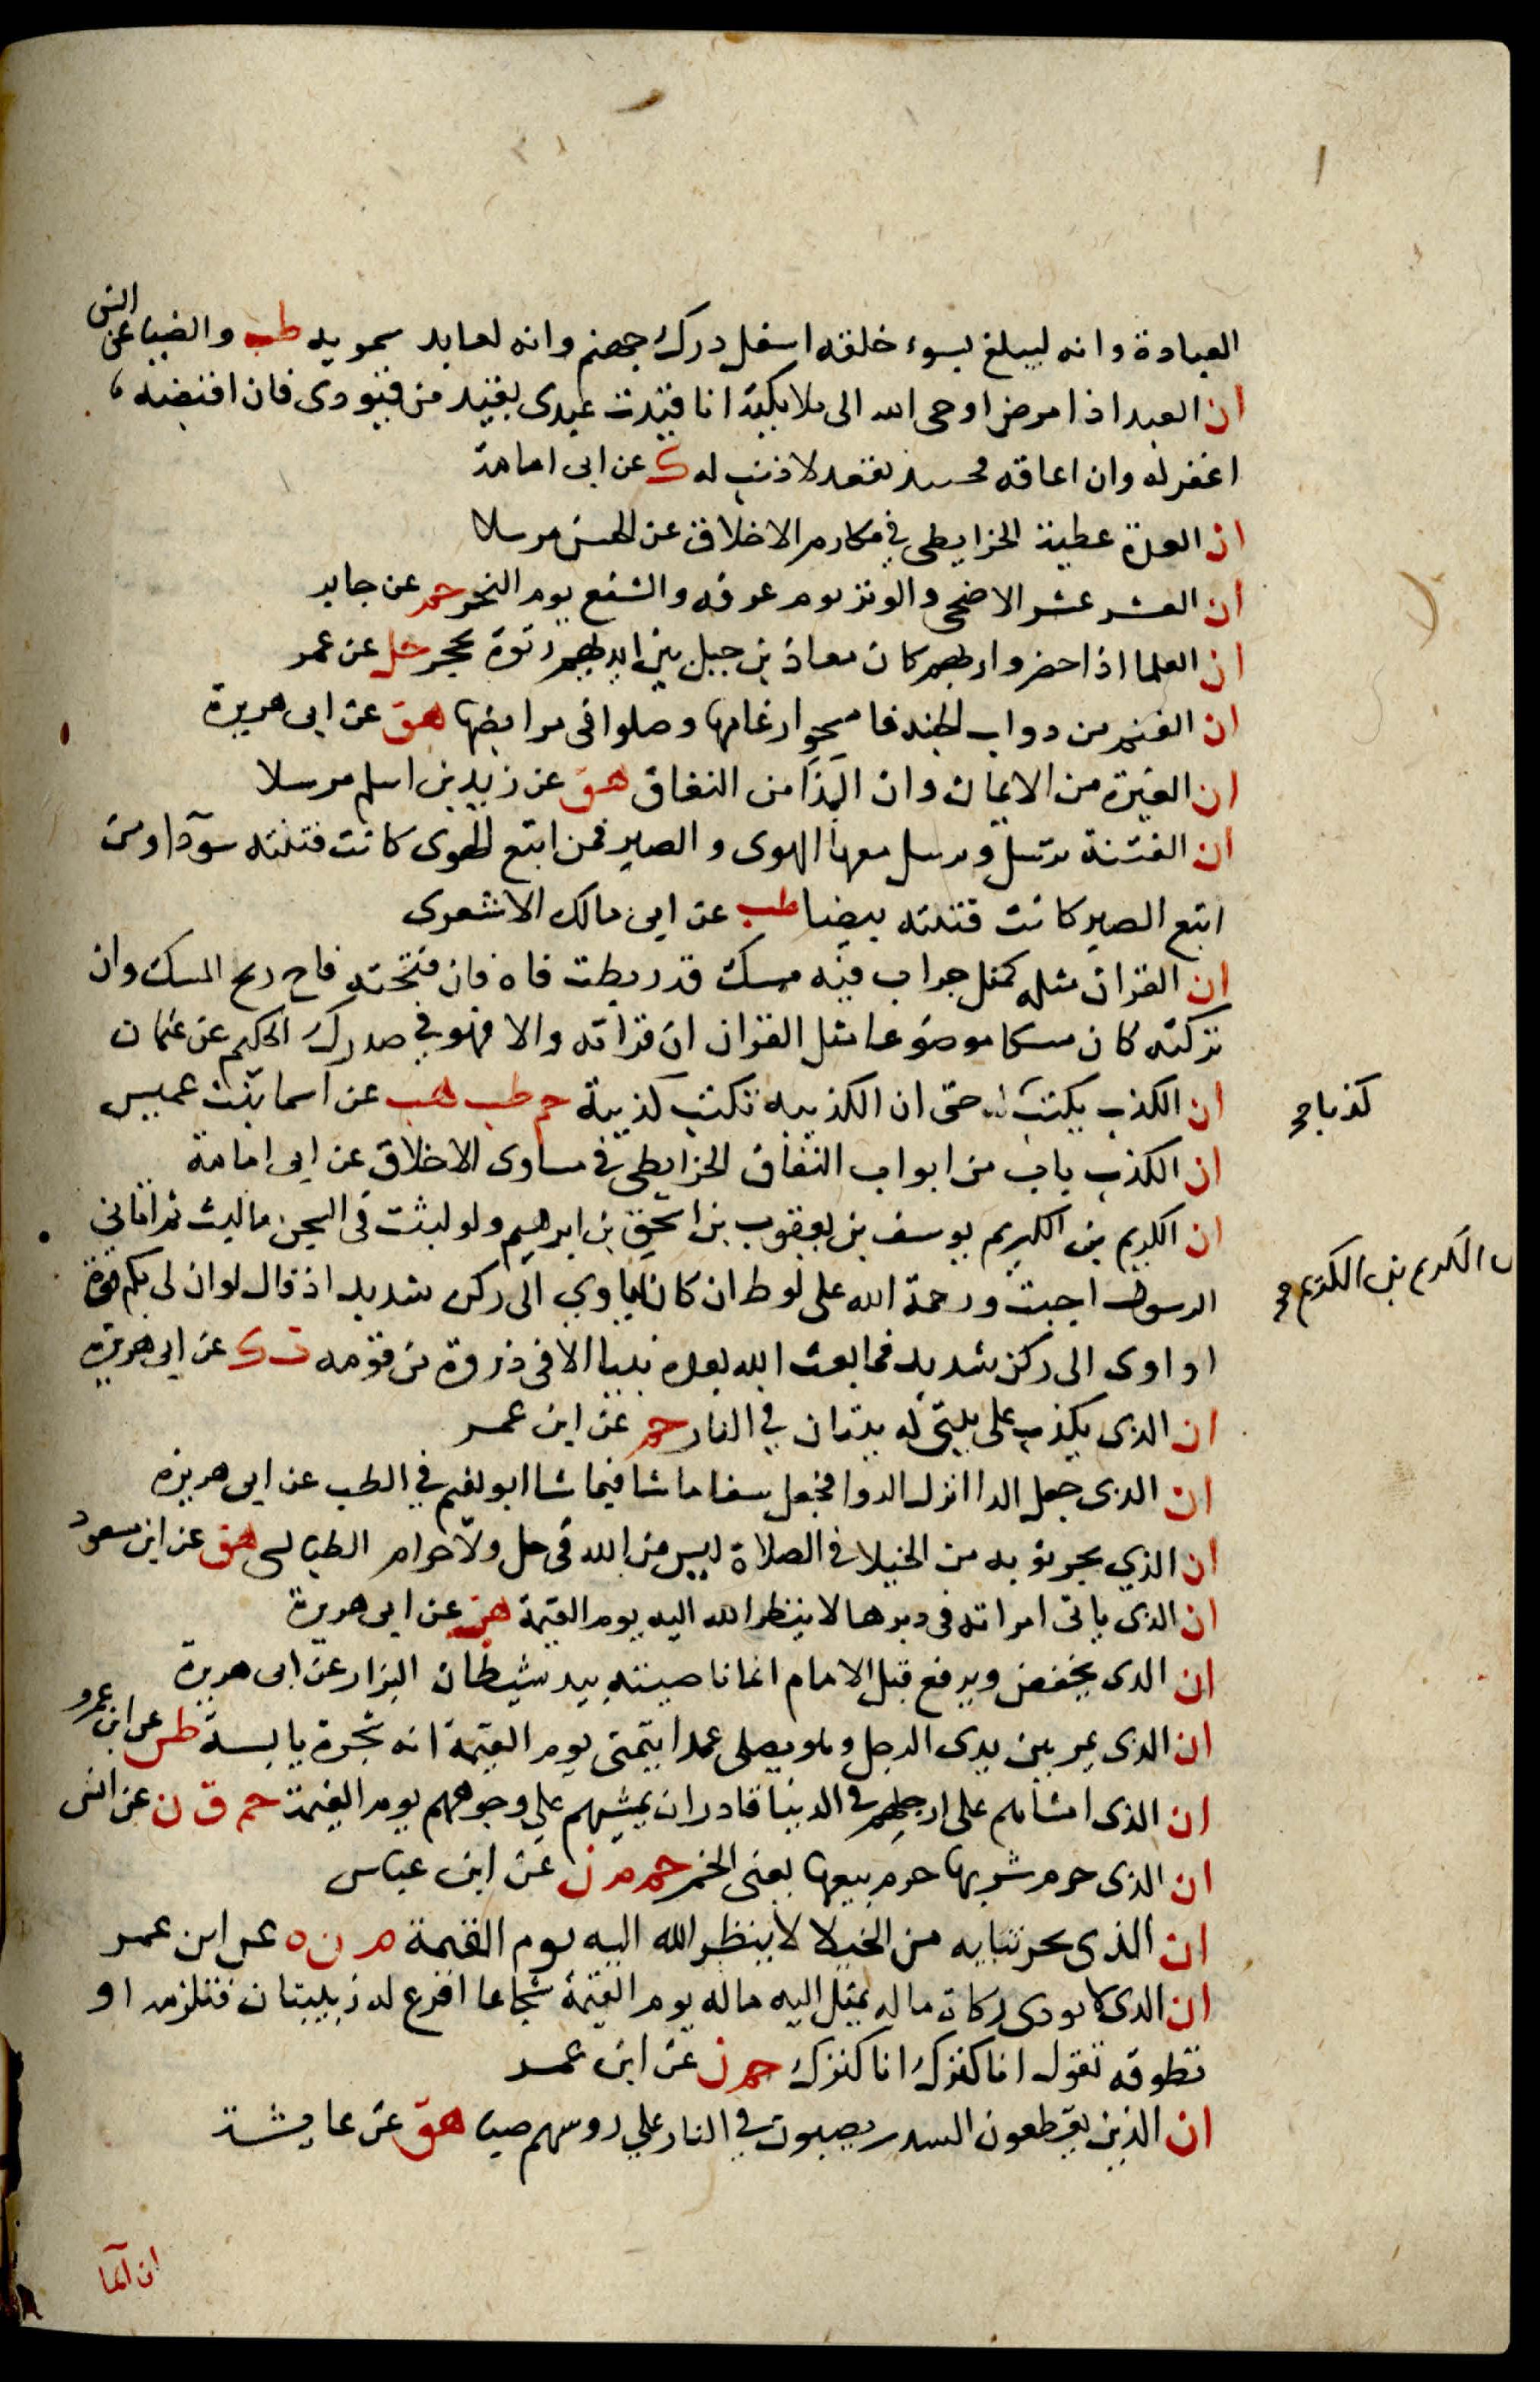 العبادة وانه ليبلغ بسوء خلقه اسفل درك جهنم وانه لعابد سمويه طب والضيا عن انس
ان العبد اذا مرض اوحى الله الى ملايكته انا قيدت عبدى بقيد من قيودى فان اقبضه
اغفر له وان اعافه فحـ يقعد لا ذنب له ك عن ابى امامة
ان العدة عطية الخرايطى في مكارم الاخلاق عن الحسن مرسلا
ان العشر عشر الاضحى والوتر يوم عرفه والشفع يوم النحر حم عن جابر
ان العلما اذا حضروا ربهم كان معاذ بن جبل بين ايديهم رتوة بحجر حل عن عمر
ان الغنم من دواب الجنة فامسحوا رغامها وصلوا فى مرابضها هق عن ابى هريرة
ان الغيرة من الايمان وان البذا من النفاق هق عن زيد بن اسلم مرسلا
ان الفتنة ترسل ويرسل معها الهوى والصبر فمن اتبع الهوى كانت قتلته سودا ومن
اتبع الصبر كانت قتلته بيضا طب عن ابى مالك الاشعرى
ان القران مثله كمثل جراب فيه مسك قد ربطت فاه فان فتحته فاح ريح المسك وان
تركته كان مسكا موضوعا مثل القران ان قراته والا فهو في صدرك الحكيم عن عثمان
ان الكذب يكتب حتى ان الكذيبه تكتب كذيبة حم طب هب عن اسما بنت عميس
كذبا صح
ان الكذب باب من ابواب النفاق الخرايطى في مساوى الاخلاق عن ابى امامة
ان الكريم بن الكريم يوسف بن يعقوب بن اسحق بن ابرهيم ولو لبثت فى السجن ما لبث ثم اتانى
بن الكريم بن الكريم صح
الرسول اجبت ورحمة الله على لوط ان كان لياوي الى ركن شديد اذ قال لو ان لى بكم قوة
او اوى الى ركن شديد فما بعث الله بعده نبيا الا فى ذروة من قومه ت ك عن ابى هريرة
ان الذى يكذب على يبنى له بيتا ن في النار حم عن ابن عمر
ان الذى جعل الدا انزل الدوا فجعل شفا ما شا فيما شا ابو نعيم في الطب عن ابى هريرة
ان الذي يجر ثوبه من الخيلا في الصلاة ليس من الله فى حل ولا حرام الطيالسى هق عن ابن مسعود
ان الذى ياتى امراته فى دبرها لا ينظر الله اليه يوم القيمة هق عن ابى هريرة
ان الذى يخفض ويرفع قبل الامام انما ناصيته بيد شيطان البزار عن ابى هريرة
ان الذى يمر بين يدى الرجل وهو يصلى عمدا يتمنى يوم القيمة انه شجرة يابسة طس عن ابن عمرو
ان الذى امشاهم على ارجلهم في الدنيا قادر ان يمشيهم على وجوههم يوم القيمة حم ق ن عن انس
ان الذى حرم شربها حرم بيعها يعنى الخمر حم م ن عن ابن عباس
ان الذى يجر ثيابه من الخيلا لا ينظر الله اليه يوم القيمة م ن ه عن ابن عمر
ان الذى لا يودى زكاة ماله يمثل اليه ماله يوم القيمة شجاعا اقرع له زبيبتان فتلزمه او
تطوقه تقول انا كنزك انا كنزك حم ن عن ابن عمر
ان الذين يقطعون السدر يصبون في النار على روسهم صبا هق عن عايشة
ان الما